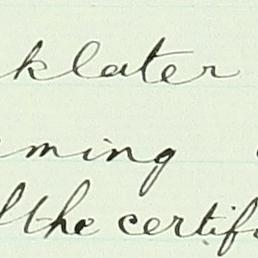 klater
ming
the certif